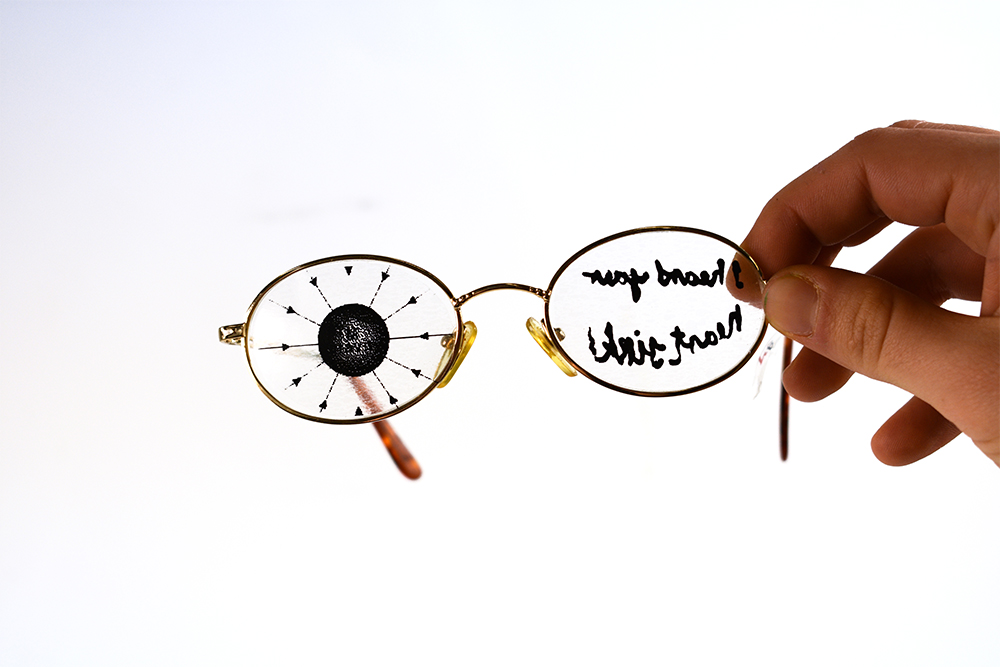 I heard your
heart sink!